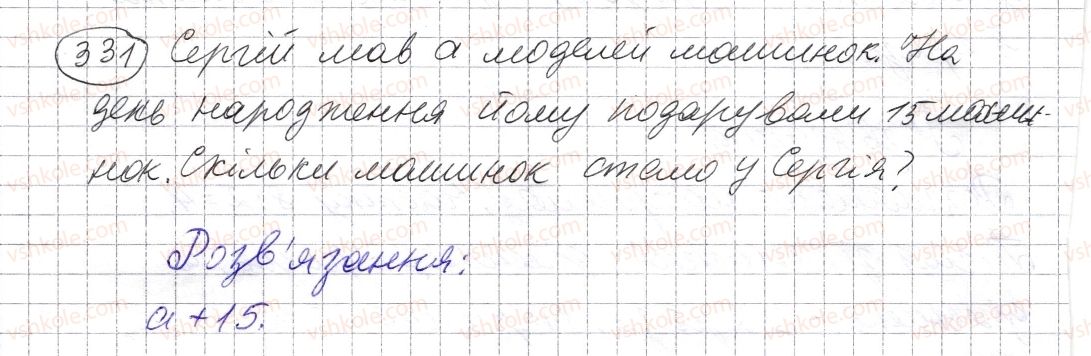 331 Сергій мав а моделей машинок. На
день народження йому подарували 15 машин-
нок. Скільки машинок стало у Сергія?
Розв'язання:
а + 15.